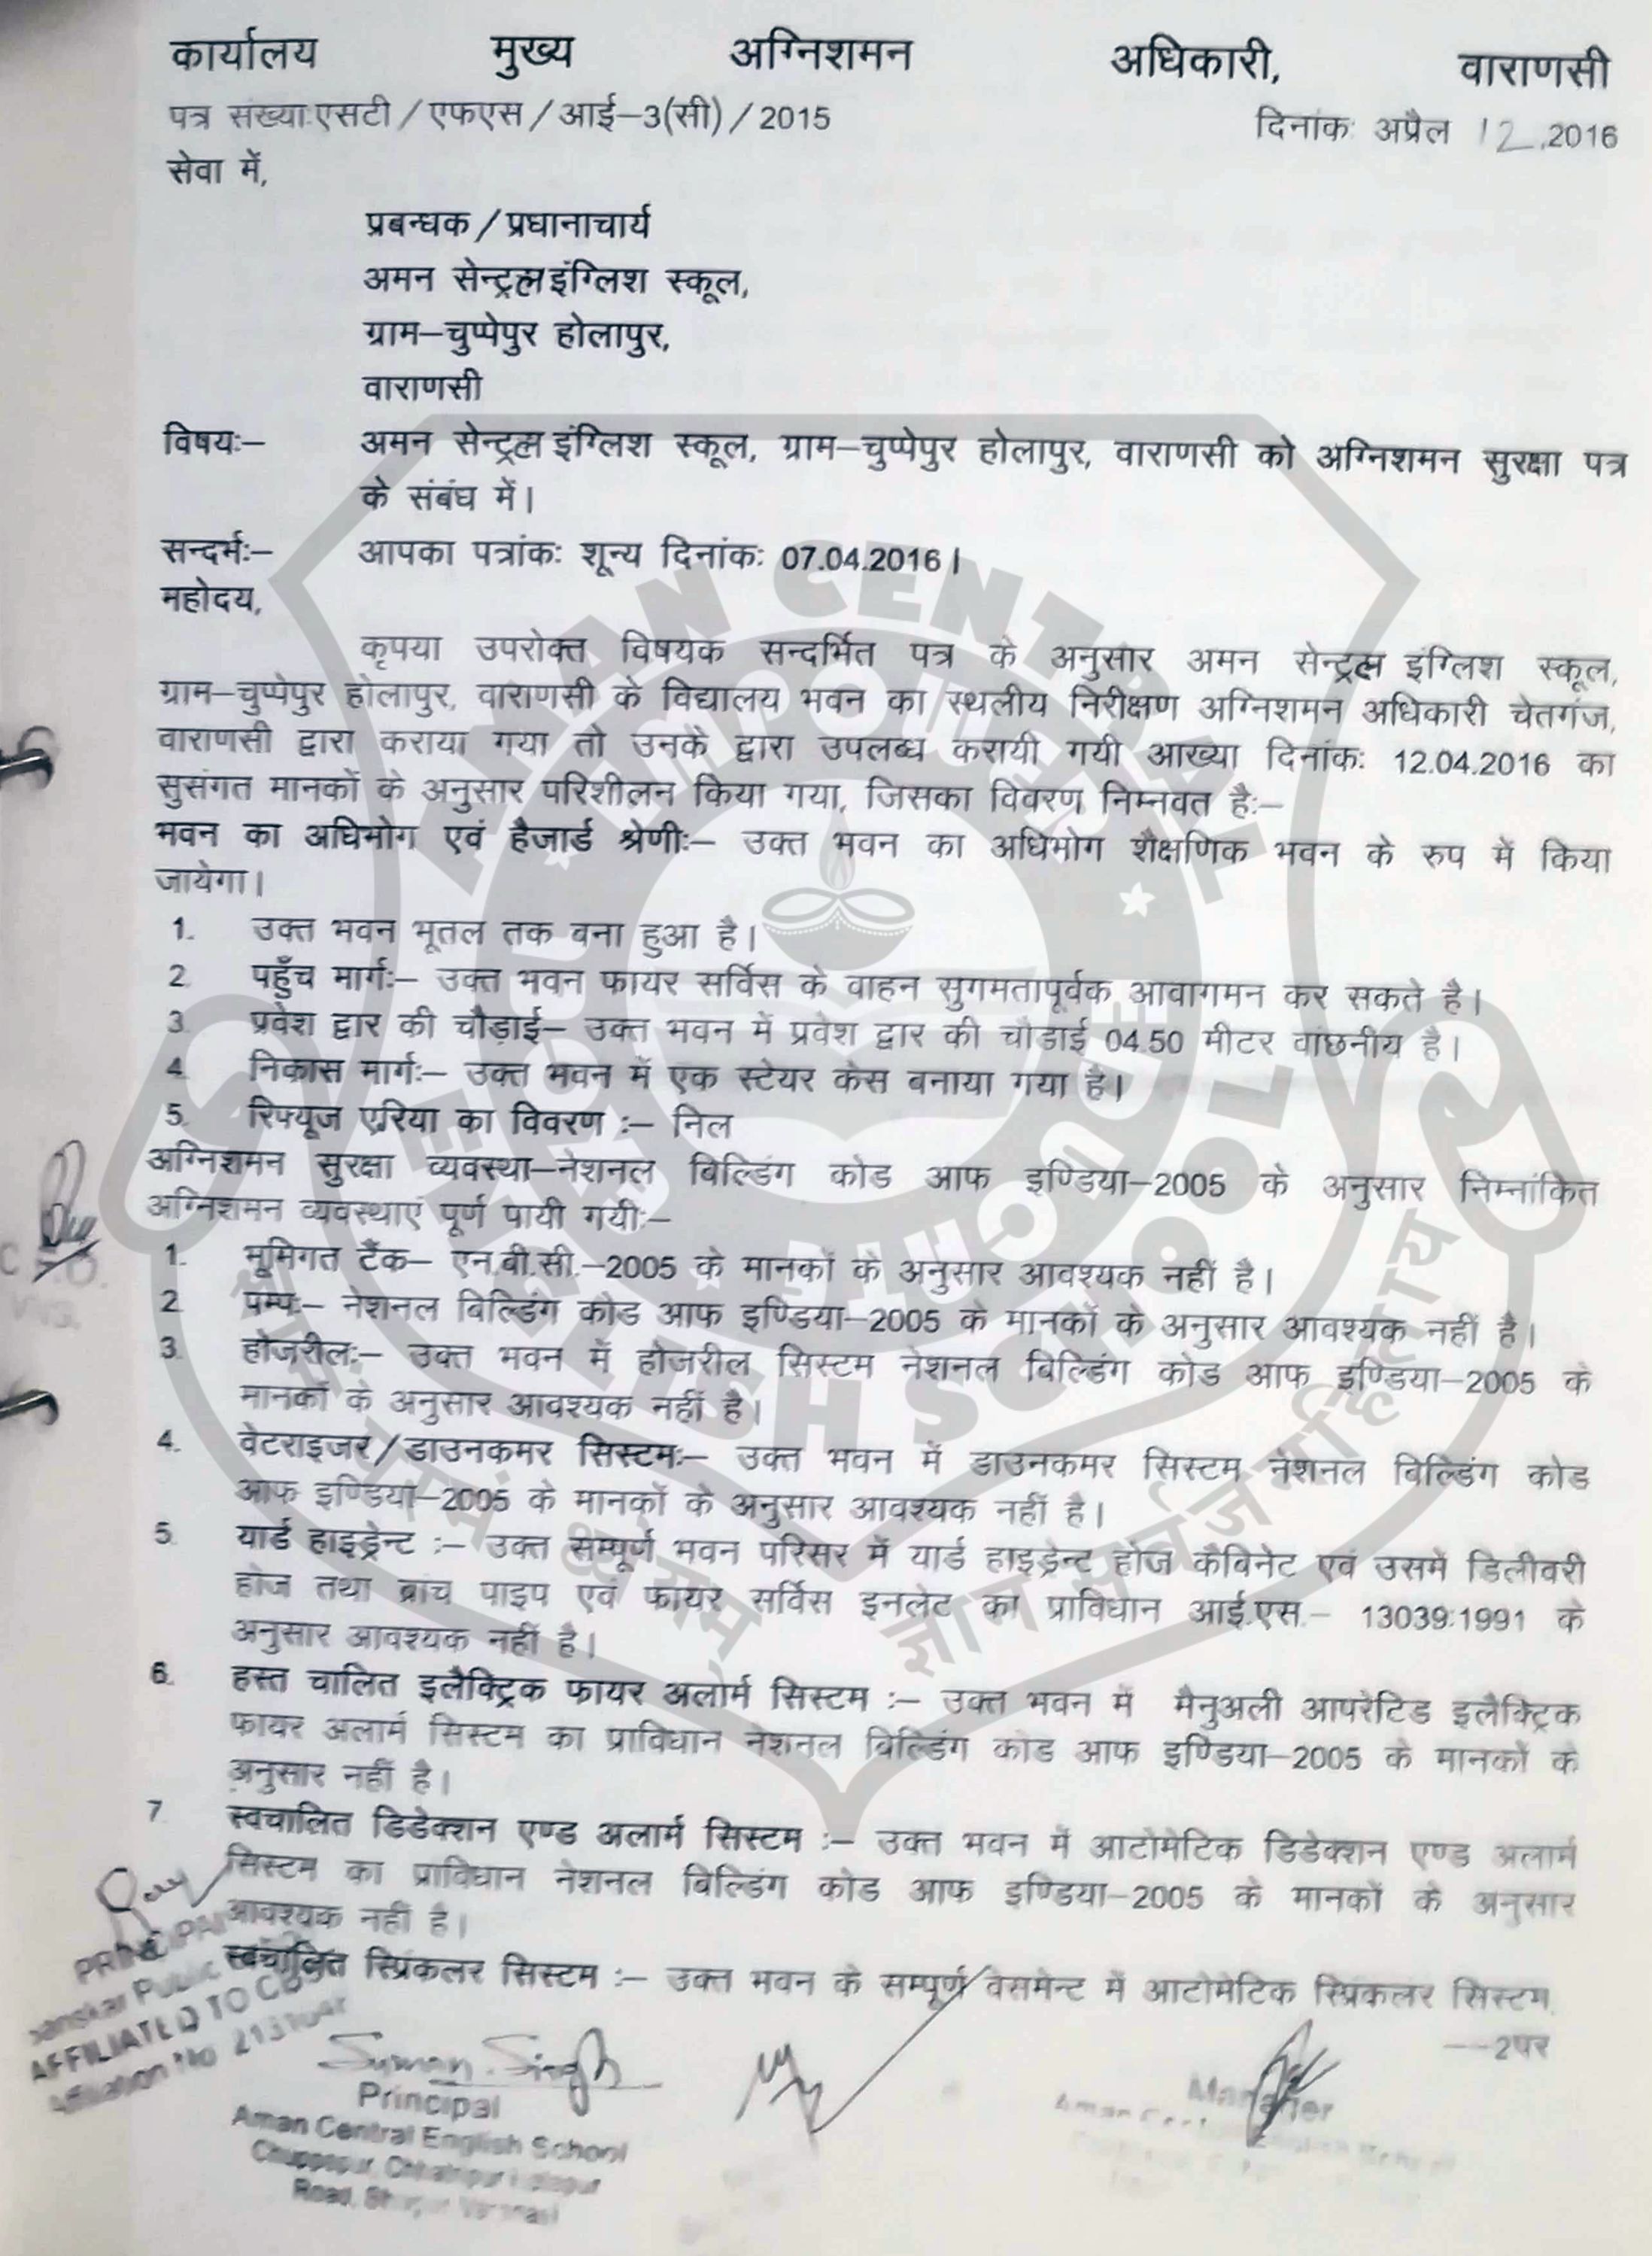 कार्यालय मुख्य अग्निशमन अधिकारी, वाराणसी
पत्र संख्या:एसटी/एफएस/आई–3(सी)/2015 दिनांक: अप्रैल 12,2016
सेवा में,
प्रबन्धक/प्रधानाचार्य
अमन सेन्ट्रल इंग्लिश स्कूल,
ग्राम–चुप्पेपुर होलापुर,
वाराणसी
विषयः– अमन सेन्ट्रल इंग्लिश स्कूल, ग्राम–चुप्पेपुर होलापुर, वाराणसी को अग्निशमन सुरक्षा पत्र
के संबंघ में।
सन्दर्भः– आपका पत्रांकः शून्य दिनांकः 07.04.2016।
महोदय,
कृपया उपरोक्त विषयक सन्दर्भित पत्र के अनुसार अमन सेन्ट्रल इंग्लिश स्कूल,
ग्राम–चुप्पेपुर होलापुर, वाराणसी के विद्यालय भवन का स्थलीय निरीक्षण अग्निशमन अधिकारी चेतगंज,
वाराणसी द्वारा कराया गया तो उनके द्वारा उपलब्ध करायी गयी आख्या दिनांकः 12.04.2016 का
सुसंगत मानकों के अनुसार परिशीलन किया गया, जिसका विवरण निम्नवत हैः–
भवन का अधिभोग एवं हैजार्ड श्रेणीः– उक्त भवन का अधिभोग शैक्षणिक भवन के रुप में किया
जायेगा।
1. उक्त भवन भूतल तक बना हुआ है।
2. पहुँच मार्गः– उक्त भवन फायर सर्विस के वाहन सुगमतापूर्वक आवागमन कर सकते है।
3. प्रवेश द्वार की चौड़ाई– उक्त भवन में प्रवेश द्वार की चौडाई 04.50 मीटर वांछनीय है।
4. निकास मार्गः– उक्त भवन में एक स्टेयर केस बनाया गया है।
5. रिफ्यूज एरिया का विवरण :– निल
अग्निशमन सुरक्षा व्यवस्था–नेशनल बिल्डिंग कोड आफ इण्डिया–2005 के अनुसार निम्नांकित
अग्निशमन व्यवस्थाएं पूर्ण पायी गयीः–
1. भूमिगत टैंक– एन.बी.सी.–2005 के मानकों के अनुसार आवश्यक नहीं है।
2. पम्पः– नेशनल बिल्डिंग कोड आफ इण्डिया–2005 के मानकों के अनुसार आवश्यक नहीं है।
3. होजरीलः– उक्त भवन में होजरील सिस्टम नेशनल बिल्डिंग कोड आफ इण्डिया–2005 के
मानकों के अनुसार आवश्यक नहीं है।
4. वेटराइजर/डाउनकमर सिस्टमः– उक्त भवन में डाउनकमर सिस्टम नेशनल बिल्डिंग कोड
आफ इण्डिया–2005 के मानकों के अनुसार आवश्यक नहीं है।
5. यार्ड हाइड्रेन्ट :– उक्त सम्पूर्ण भवन परिसर में यार्ड हाइड्रेन्ट होज कैबिनेट एवं उसमें डिलीवरी
होज तथा ब्रांच पाइप एवं फायर सर्विस इनलेट का प्राविधान आई.एस.– 13039:1991 के
अनुसार आवश्यक नहीं है।
6. हस्त चालित इलैक्ट्रिक फायर अलोर्म सिस्टम :– उक्त भवन में मैनुअली आपरेटिड इलैक्ट्रिक
फायर अलार्म सिस्टम का प्राविधान नेशनल बिल्डिंग कोड आफ इण्डिया–2005 के मानकों के
अनुसार नहीं है।
7. स्वचालित डिडेक्शन एण्ड अलार्म सिस्टम :– उक्त भवन में आटोमेटिक डिडेक्शन एण्ड अलार्म
सिस्टम का प्राविधान नेशनल बिल्डिंग कोड आफ इण्डिया–2005 के मानकों के अनुसार
आवश्यक नहीं है।
स्वचालित स्प्रिंकलर सिस्टम :– उक्त भवन के सम्पूर्ण वेसमेन्ट में आटोमेटिक स्प्रिंकलर सिस्टम
---2पर
PRINCIPAL
Public
AFFILIATED TO
Affiliation No
Suman Singh
Principal
Aman Central English School
Road
Manager
AMAN CENTRAL
ENGLISH SCHOOL